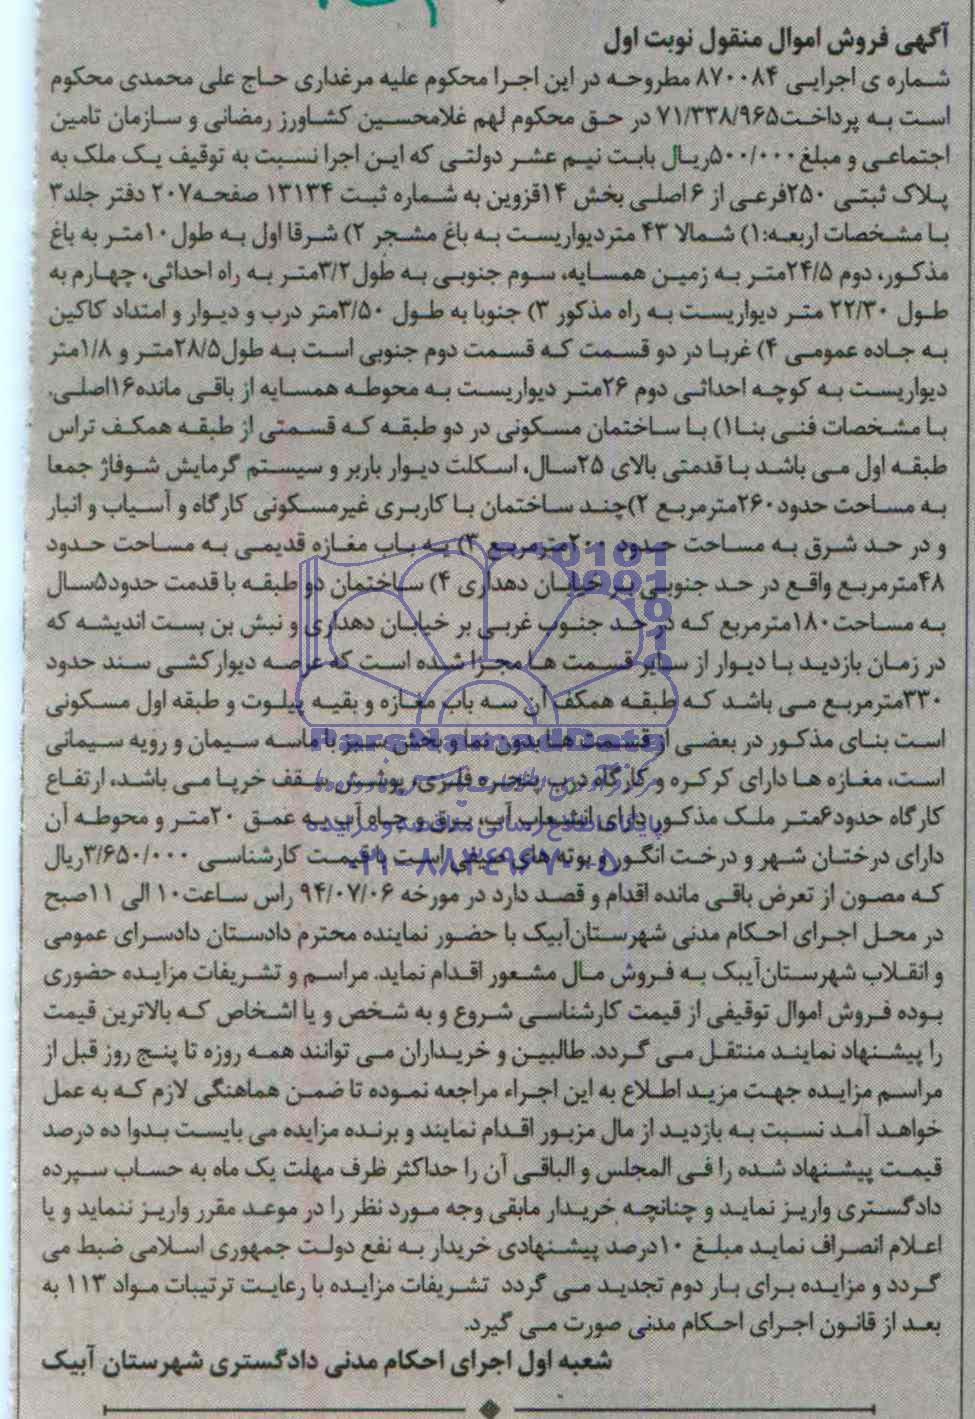 آگهی فروش اموال منقول نوبت اول
شماره ی اجرایی ۸۷۰۰۸۴ مطروحه در این اجرا محکوم علیه مرغداری حاج علی محمدی محکوم
است به پرداخت۷۱/۳۳۸/۹۶۵ در حق محکوم لهم غلامحسین کشاورز رمضانی و سازمان تامین
اجتماعی و مبلغ۵۰۰/۰۰۰ریال بابت نیم عشر دولتی که این اجرا نسبت به توقیف یک ملک به
پلاک ثبتی ۲۵۰فرعی از ۶اصلی بخش ۱۴قزوین به شماره ثبت ۱۳۱۳۴ صفحه۲۰۷ دفتر جلد۳
با مشخصات اربعه:۱) شمالا ۴۳ متردیواریست به باغ مشجر ۲) شرقا اول به طول۱۰متر به باغ
مذکور، دوم ۲۴/۵متر به زمین همسایه، سوم جنوبی به طول۳/۲متر به راه احداثی، چهارم به
طول ۲۲/۳۰ متر دیواریست به راه مذکور ۳) جنوبا به طول ۳/۵۰متر درب و دیوار و امتداد کاکین
به جاده عمومی ۴) غربا در دو قسمت که قسمت دوم جنوبی است به طول۲۸/۵متر و ۱/۸متر
دیواریست به کوچه احداثی دوم ۲۶متر دیواریست به محوطه همسایه از باقی مانده۱۶اصلی.
با مشخصات فنی بنا۱) با ساختمان مسکونی در دو طبقه که قسمتی از طبقه همکف تراس
طبقه اول می باشد با قدمتی بالای ۲۵سال، اسکلت دیوار باربر و سیستم گرمایش شوفاژ جمعا
به مساحت حدود۲۶۰مترمربع ۲)چند ساختمان با کاربری غیرمسکونی کارگاه و آسیاب و انبار
و در حد شرق به مساحت حدود ۲۰۰مترمربع ۳) یه باب مغازه قدیمی به مساحت حدود
۴۸مترمربع واقع در حد جنوبی بر خیابان دهداری ۴) ساختمان دو طبقه با قدمت حدود۵سال
به مساحت۱۸۰مترمربع که در حد جنوب غربی بر خیابان دهداری و نبش بن بست اندیشه که
در زمان بازدید با دیوار از سایر قسمت ها مجزا شده است که عرصه دیوارکشی سند حدود
۳۳۰مترمربع می باشد که طبقه همکف آن سه باب مغازه و بقیه پیلوت و طبقه اول مسکونی
است بنای مذکور در بعضی از قسمت ها بدون نما و بخش سبز با ماسه سیمان و رویه سیمانی
است، مغازه ها دارای کرکره و کارگاه درب پنجره فلزی، پوشش سقف خرپا می باشد، ارتفاع
کارگاه حدود۶متر ملک مذکور دارای انشعاب آب، برق و چاه آب به عمق ۲۰متر و محوطه آن
دارای درختان شهر و درخت انگور و بوته های صیفی است با قیمت کارشناسی ۳/۶۵۰/۰۰۰ریال
که مصون از تعرض باقی مانده اقدام و قصد دارد در مورخه ۹۴/۰۷/۰۶ راس ساعت۱۰ الی ۱۱صبح
در محل اجرای احکام مدنی شهرستان‌آبیک با حضور نماینده محترم دادستان دادسرای عمومی
و انقلاب شهرستان‌آبیک به فروش مال مشعور اقدام نماید. مراسم و تشریفات مزایده حضوری
بوده فروش اموال توقیفی از قیمت کارشناسی شروع و به شخص و یا اشخاص که بالاترین قیمت
را پیشنهاد نمایند منتقل می گردد. طالبین و خریداران می توانند همه روزه تا پنج روز قبل از
مراسم مزایده جهت مزید اطلاع به این اجراء مراجعه نموده تا ضمن هماهنگی لازم که به عمل
خواهد آمد نسبت به بازدید از مال مزبور اقدام نمایند و برنده مزایده می بایست بدوا ده درصد
قیمت پیشنهاد شده را فی المجلس و الباقی آن را حداکثر ظرف مهلت یک ماه به حساب سپرده
دادگستری واریز نماید و چنانچه خریدار مابقی وجه مورد نظر را در موعد مقرر واریز ننماید و یا
اعلام انصراف نماید مبلغ ۱۰درصد پیشنهادی خریدار به نفع دولت جمهوری اسلامی ضبط می
گردد و مزایده برای بار دوم تجدید می گردد تشریفات مزایده با رعایت ترتیبات مواد ۱۱۳ به
بعد از قانون اجرای احکام مدنی صورت می گیرد.
شعبه اول اجرای احکام مدنی دادگستری شهرستان آبیک
ParsNamadData
پایگاه اطلاع رسانی مناقصه و مزایده
۰۲۱-۸۸۳۴۹۶۷۰-۵